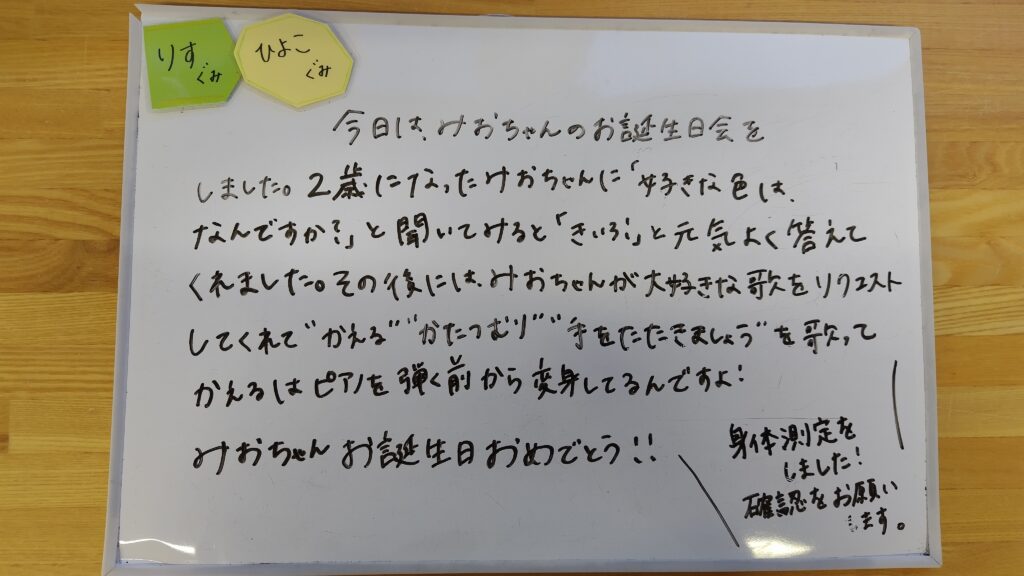 りす
ぐみ
ひよこ
ぐみ
今日は、みおちゃんのお誕生日会を
しました。2歳になったみおちゃんに「好きな色は、
なんですか?」と聞いてみると「きいろ!」と元気よく答えて
くれました。その後には、みおちゃんが大好きな歌をリクエスト
してくれて"かえる""かたつむり""手をたたきましょう"を歌って
かえるはピアノを弾く前から変身してるんですよ!
みおちゃんお誕生日おめでとう!!
身体測定を
しました!
確認をお願い
します。